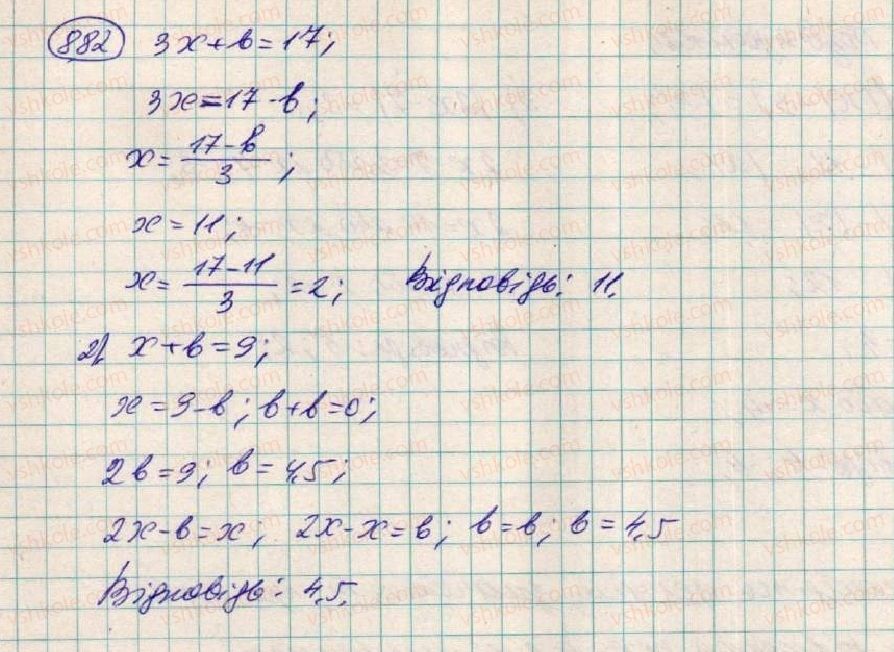 882 3x+b=17;
3x=17-b;
x= 17-b / 3 ;
x=11;
x= 17-11 / 3 =2; Відповідь: 11.
2) x+b=9;
x=9-b; b+b=0;
2b=9; b=4,5;
2x-b=x; 2x-x=b; b=b; b=4,5
Відповідь: 4,5.